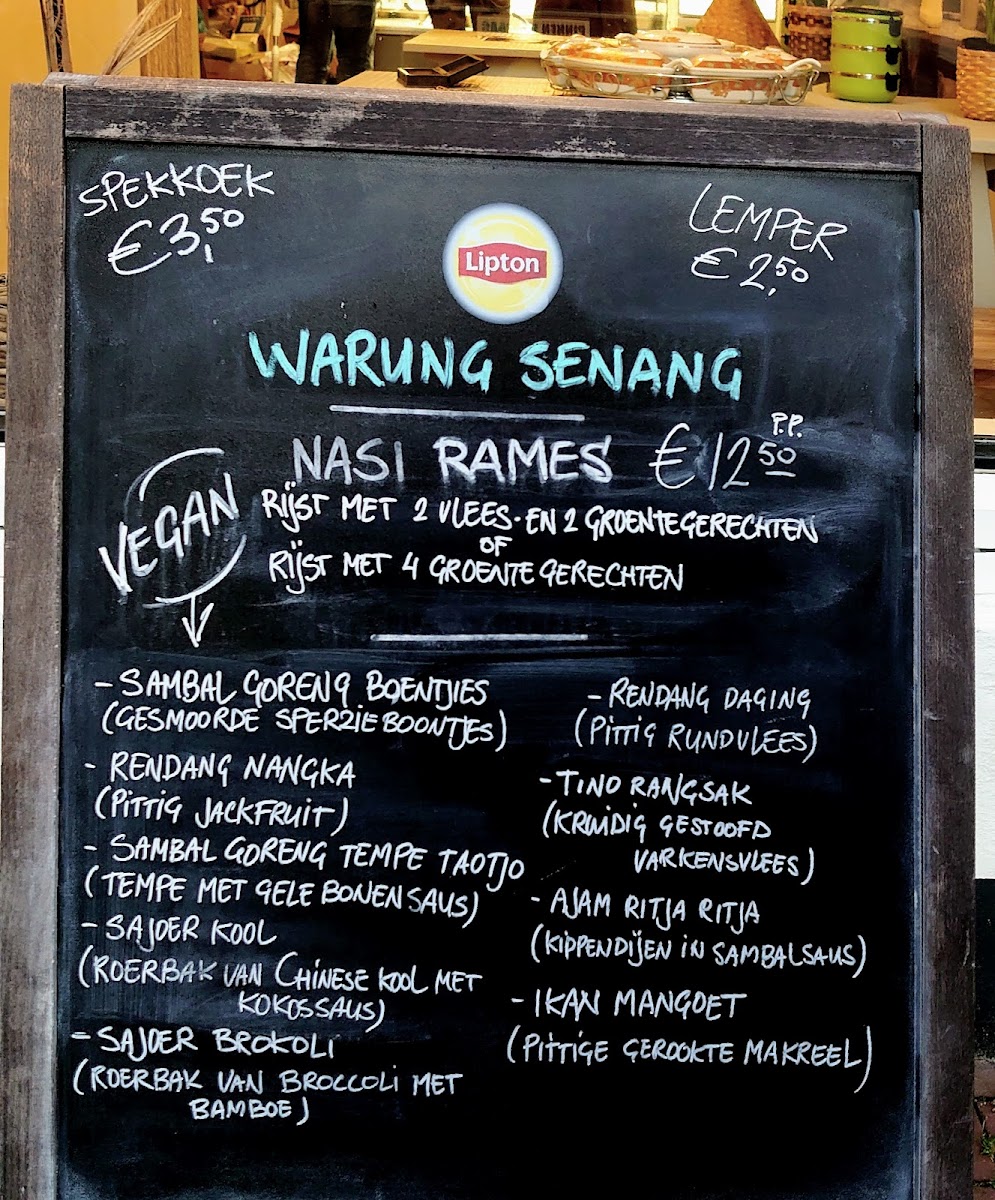 SPEKKOEK
€3,50
LEMPER
€2,50
Lipton
WARUNG SENANG
NASI RAMES €1250 P.P.
VEGAN
RIJST MET 2 VLEES- EN 2 GROENTEGERECHTEN
OF
RIJST MET 4 GROENTEGERECHTEN
- SAMBAL GORENG BOENTJIES
(GESMOORDE SPERZIEBOONTJES)
- RENDANG NANGKA
(PITTIG JACKFRUIT)
- SAMBAL GORENG TEMPE TAOTJO
(TEMPE MET GELE BONENSAUS)
- SAJOER KOOL
(ROERBAK VAN CHINESE KOOL MET
KOKOSSAUS)
- SAJOER BROKOLI
(ROERBAK VAN BROCCOLI MET
BAMBOE)
- RENDANG DAGING
(PITTIG RUNDVLEES)
- TINO RANGSAK
(KRUIDIG GESTOOFD
VARKENSVLEES)
- AJAM RITJA RITJA
(KIPPENDIJEN IN SAMBALSAUS)
- IKAN MANGOET
(PITTIGE GEROOKTE MAKREEL)